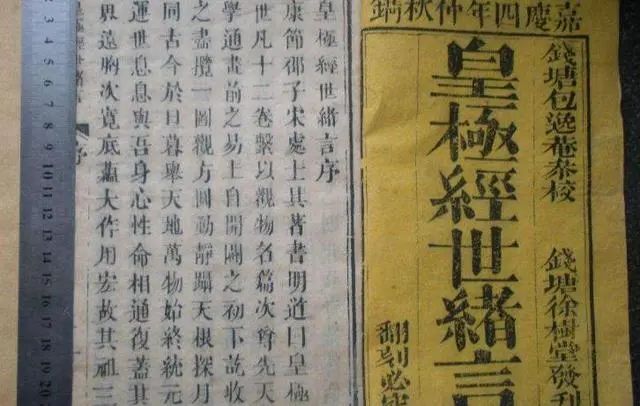 嘉慶四年仲秋鐫
錢塘包逸菴叅校
錢塘徐樹堂發刊
皇極經世緒言
翻刻必究
皇極經世緒言序
康節邵子宋處士其著書明道曰皇極
世凡十二卷繫以觀物名篇次尊先天
學通畫前之易上自開闢之初下訖收
之盡攬一圖觀方圓動靜躡天根探月
同古今於旦暮舉天地萬物始終統元
運世息息與吾身心性命相通復蓋其
界遠胸次寬底蘊大作用宏故其祖三
序
3
4
5
6
7
8
9
10
11
12
13
14
15
16
17
18
19
20